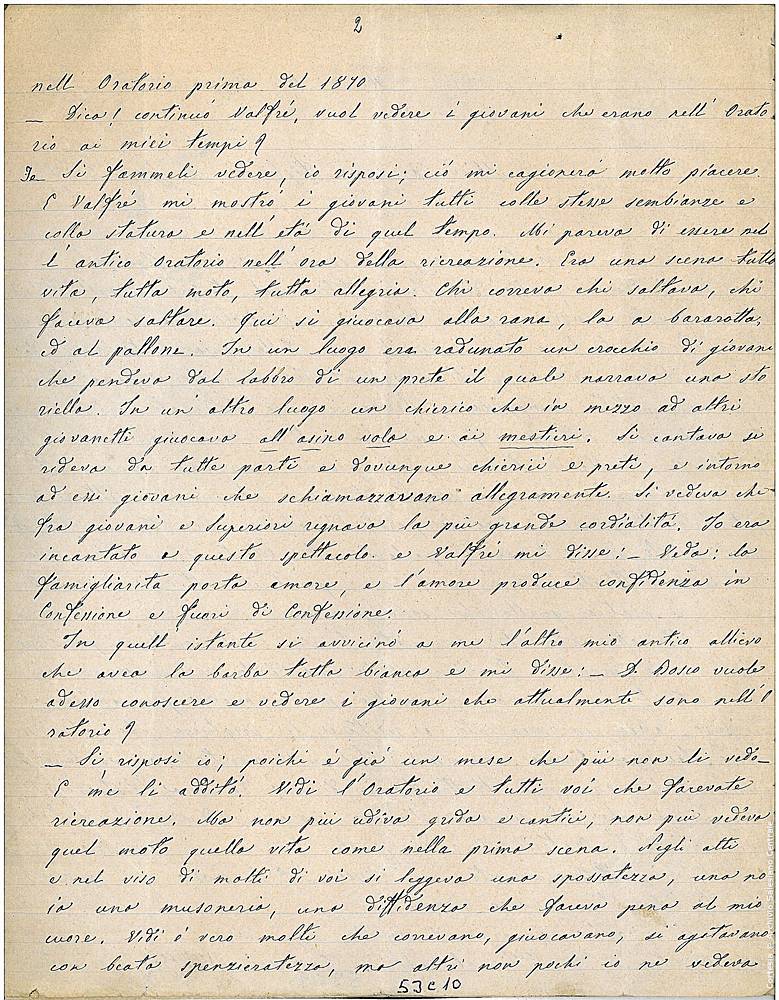 2
nell Oratorio prima del 1870
— Dica! continuó Valfré, vuol vedere i giovani che erano nell' Orato
rio ai miei tempi?
Io Sí fammeli vedere, io risposi; ció mi cagionerá molto piacere.
E Valfré mi mostró i giovani tutti colle stesse sembianze e
colla statura e nell' etá di quel tempo. Mi pareva di essere nel
l' antico Oratorio nell' ora della ricreazione. Era una scena tutta
vita, tutta moto, tutta allegria. Chi correva chi saltava, chi
faceva saltare. Qui si giuocava alla rana, la a bararotta,
ed al pallone. In un luogo era radunato un crocchio di giovani
che pendeva dal labbro di un prete il quale narrava una sto
riella. In un' altro luogo un chierico che in mezzo ad altri
giovanetti giuocava all' asino vola e ai mestieri. Si cantava si
rideva da tutte parti e dovunque chierici e preti, e intorno
ad essi giovani che schiamazzavano allegramente. Si vedeva che
fra giovani e Superiori regnava la piú grande cordialitá. Io era
incantato a questo spettacolo. e Valfré mi disse: — Veda: la
famigliaritá porta amore, e l' amore produce confidenza in
Confessione e fuori di Confessione.
In quell' istante si avvicinó a me l' altro mio antico allievo
che avea la barba tutta bianca e mi disse: — D. Bosco vuole
adesso conoscere e vedere i giovani che attualmente sono nell' O
ratorio?
— Sí risposi io; poichi é giá un mese che piú non li vedo —
E me li additó. Vidi l' Oratorio e tutti voi che facevate
ricreazione. Ma non piú udiva grida e cantici, non piú vedeva
quel moto quella vita come nella prima scena. Negli atti
e nel viso di molti di voi si leggeva una spossatezza, una no
ia una musoneria, una diffidenza che faceva pena al mio
cuore. Vidi é vero molti che correvano, giuocavano, si agitavano
con beata spenzieratezza, ma altri non pochi io ne vedeva
53C10